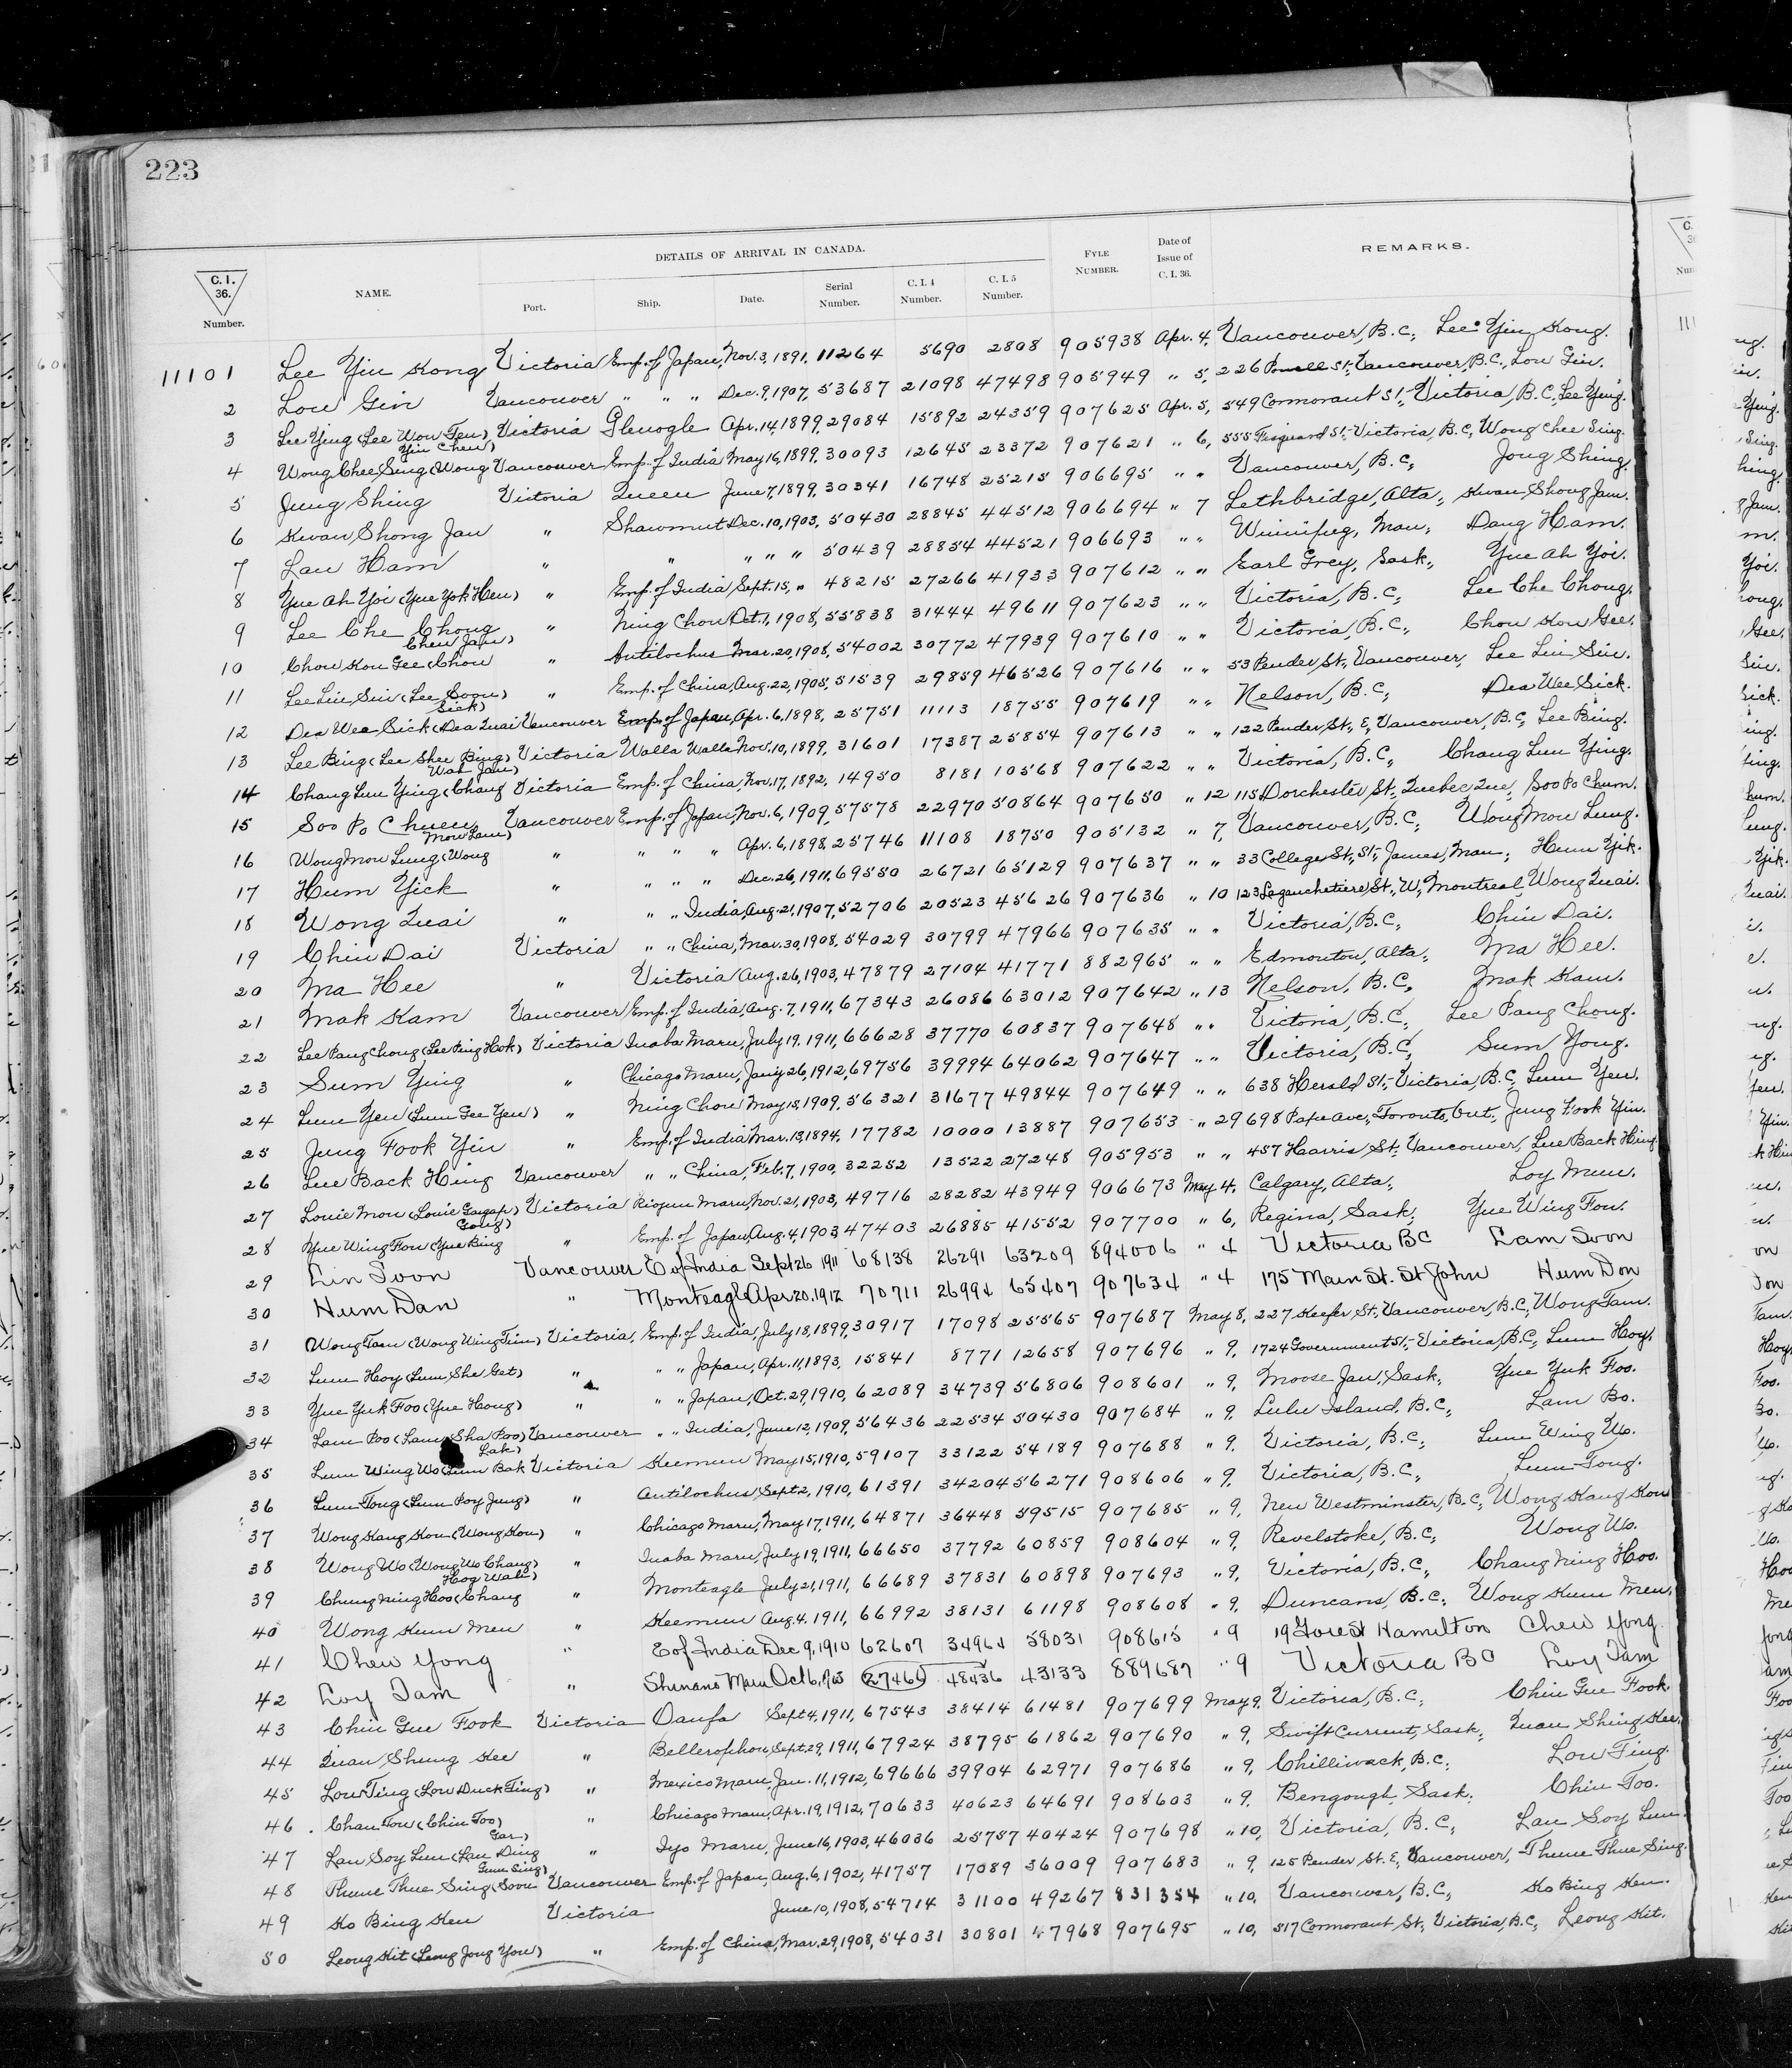 223
DETAILS OF ARRIVAL IN CANADA.
C. I. 36. Number. NAME. Port. Ship. Date. Serial Number. C. I. 4 Number. C. I. 5 Number. FYLE NUMBER. Date of Issue of C. I. 36. REMARKS.
11101 Lee Yin Kong Victoria Emp. of Japan, Nov. 3, 1891, 11264 5690 2808 905938 Apr. 4, Vancouver, B.C., Lee Yin Kong.
2 Lou Gin Vancouver " " " Dec. 9, 1907, 53687 21098 47498 905949 " 5, 226 Powell St., Vancouver, B.C., Lou Gin.
3 Lee Ying (Lee Wou Fen) Victoria Glenogle Apr. 14, 1899, 29084 15892 24359 907625 Apr. 5, 549 Cormorant St., Victoria, B.C., Lee Ying.
4 Wong Chee Sing (Wong Yin Chew) Vancouver Emp. of India May 16, 1899, 30093 12645 23372 907621 " 6, 555 Fisguard St., Victoria, B.C., Wong Chee Sing.
5 Jung Shing Victoria Queen June 7, 1899, 30341 16748 25215 906695 " " Vancouver, B.C., Jong Shing.
6 Kwan Shong Jan " Shawmut Dec. 10, 1903, 50430 28845 44512 906694 " 7 Lethbridge, Alta., Kwan Shong Jam.
7 Lau Ham " " " " " 50439 28854 44521 906693 " " Winnipeg, Man., Dang Ham.
8 Yue Ah Yoi (Yue Yok Hen) " Emp. of India, Sept. 15, " 48215 27266 41933 907612 " " Earl Grey, Sask., Yue Ah Yoi.
9 Lee Che Chong " Ning Chow Oct. 1, 1908, 55838 31444 49611 907623 " " Victoria, B.C., Lee Che Chong.
10 Chow Kou Gee (Chow Chew Jan) " Antilochus Mar. 20, 1908, 54002 30772 47939 907610 " " Victoria, B.C., Chow Kow Gee.
11 Lee Lin Sin (Lee Soon) " Emp. of China, Aug. 22, 1905, 51539 29859 46526 907616 " " 53 Pender St., Vancouver, Lee Lin Sin.
12 Dea Wee Sick (Dea Quai Sick) Vancouver Emp. of Japan, Apr. 6, 1898, 25751 11113 18755 907619 " " Nelson, B.C., Dea Wee Sick.
13 Lee Bing (Lee Shee Bing) Victoria Walla Walla Nov. 10, 1899, 31601 17387 25854 907613 " " 122 Pender St., E., Vancouver, B.C., Lee Bing.
14 Chang Lun Ying (Chang Wah Jan) Victoria Emp. of China, Nov. 17, 1892, 14950 8181 10568 907622 " " Victoria, B.C., Chang Lun Ying.
15 Soo Po Chuen Vancouver Emp. of Japan, Nov. 6, 1909, 57578 22970 50864 907650 " 12 115 Dorchester St., Quebec, Que., Soo Po Chum.
16 Wong Mou Lung (Wong Mow Lam) " " " " Apr. 6, 1898, 25746 11108 18750 905132 " 7, Vancouver, B.C., Wong Mow Lung.
17 Hum Yick " " " " Dec. 26, 1911, 69550 26721 65129 907637 " " 33 College St., St. James, Man., Hum Yik.
18 Wong Quai " " " India, Aug. 21, 1907, 52706 20523 45626 907636 " 10 123 Lagauchetiere St., W., Montreal, Wong Quai.
19 Chin Dai Victoria " " China, Mar. 30, 1908, 54029 30799 47966 907635 " " Victoria, B.C., Chin Dai.
20 Ma Hee " Victoria Aug. 26, 1903, 47879 27104 41771 882965 " " Edmonton, Alta., Ma Hee.
21 Mak Kam Vancouver Emp. of India, Aug. 7, 1911, 67343 26086 63012 907642 " 13 Nelson, B.C., Mak Kam.
22 Lee Pang Chong (Lee Ping Hok) Victoria Inaba Maru, July 19, 1911, 66628 37770 60837 907648 " " Victoria, B.C., Lee Pang Chong.
23 Sum Ying " Chicago Maru, Jany 26, 1912, 69756 39994 64062 907647 " " Victoria, B.C., Sum Yong.
24 Lum Yen (Lum Gee Yen) " Ning Chow May 15, 1909, 56321 31677 49844 907649 " " 638 Herald St., Victoria, B.C., Lum Yen.
25 Jung Fook Yin " Emp. of India Mar. 13, 1894, 17782 10000 13887 907653 " 29 698 Pape Ave., Toronto, Ont., Jung Fook Yin.
26 Lue Back Hing Vancouver " " China, Feb. 7, 1900, 32252 13522 27248 905953 " " 457 Harris St., Vancouver, Lue Back Hing.
27 Louie Mon (Louie Gagap) Victoria Riojun Maru, Nov. 21, 1903, 49716 28282 43949 906673 May 4, Calgary, Alta., Loy Mun.
28 Yue Wing Fon (Yue Bing Gong) " Emp. of Japan, Aug. 4, 1903 47403 26885 41552 907700 " 6, Regina, Sask., Yue Wing Fon.
29 Lin Soon Vancouver E of India Sept 26 1911 68138 26291 63209 894006 " 4 Victoria BC Lam Soon
30 Hum Dan " Monteagle Apr. 20, 1912 70711 26994 65407 907634 " 4 175 Main St. St John Hum Don
31 Wong Tam (Wong Wing Tim) Victoria, Emp. of India, July 18, 1899, 30917 17098 25565 907687 May 8, 227 Keefer St., Vancouver, B.C., Wong Tam.
32 Lum Hoy (Lum She Get) " " " Japan, Apr. 11, 1893, 15841 8771 12658 907696 " 9, 1724 Government St., Victoria, B.C., Lum Hoy.
33 Yue Yuk Foo (Yue Hong) " " " Japan, Oct. 29, 1910, 62089 34739 56806 908601 " 9, Moose Jaw, Sask., Yue Yuk Foo.
34 Lam Poo (Lam Sha Poo) Vancouver " " India, June 12, 1909, 56436 22534 50430 907684 " 9, Lulu Island, B.C., Lam Bo.
35 Lum Wing Wo (Lum Bak Lak) Victoria Keemun May 15, 1910, 59107 33122 54189 907688 " 9, Victoria, B.C., Lum Wing Wo.
36 Lum Tong (Lum Poy Jung) " Antilochus, Sept. 2, 1910, 61391 34204 56271 908606 " 9, Victoria, B.C., Lum Tong.
37 Wong Kang Kou (Wong Kou) " Chicago Maru, May 17, 1911, 64871 36448 59515 907685 " 9, New Westminster, B.C., Wong Kang Kou
38 Wong Wo (Wong Wo Chang) " Inaba Maru, July 19, 1911, 66650 37792 60859 908604 " 9, Revelstoke, B.C., Wong Wo.
39 Chung Ning Hoo (Chang Hog Wah) " Monteagle July 21, 1911, 66689 37831 60898 907693 " 9, Victoria, B.C., Chang Ning Hoo.
40 Wong Kum Men " Keemun Aug. 4, 1911, 66992 38131 61198 908608 " 9, Duncans, B.C., Wong Kum Men.
41 Chew Yong " E of India Dec 9, 1910 62607 34964 58031 908615 " 9 19 Gore St Hamilton Chew Yong
42 Loy Tam " Shinano Maru Oct 6, 1903 27464 48436 43133 889687 " 9 Victoria BC Loy Tam
43 Chin Gue Fook Victoria Oanfa Sept 4, 1911, 67543 38414 61481 907699 May 9, Victoria, B.C., Chin Gue Fook.
44 Quan Shung Kee " Bellerophon, Sept. 29, 1911, 67924 38795 61862 907690 " 9, Swift Current, Sask., Quan Shing Kee.
45 Low Ting (Low Duck Ting) " Mexico Maru, Jan. 11, 1912, 69666 39904 62971 907686 " 9, Chilliwack, B.C., Low Ting.
46 Chan Tou (Chin Too) " Chicago Maru, Apr. 19, 1912, 70633 40623 64691 908603 " 9, Bengough, Sask., Chin Too.
47 Lau Soy Lun (Lau Ding Gar) " Iyo Maru, June 16, 1903, 46036 25757 40424 907698 " 10, Victoria, B.C., Lau Soy Lun.
48 Thune Thue Sing (Soon Gum Sing) Vancouver Emp. of Japan, Aug. 6, 1902, 41757 17089 36009 907683 " 9, 125 Pender St. E., Vancouver, Thune Thue Sing.
49 Ko Bing Ken Victoria June 10, 1908, 54714 31100 49267 831354 " 10, Vancouver, B.C., Ko Bing Ken.
50 Leong Kit (Leong Jong You) " Emp. of China, Mar. 29, 1908, 54031 30801 47968 907695 " 10, 517 Cormorant St., Victoria, B.C., Leong Kit.